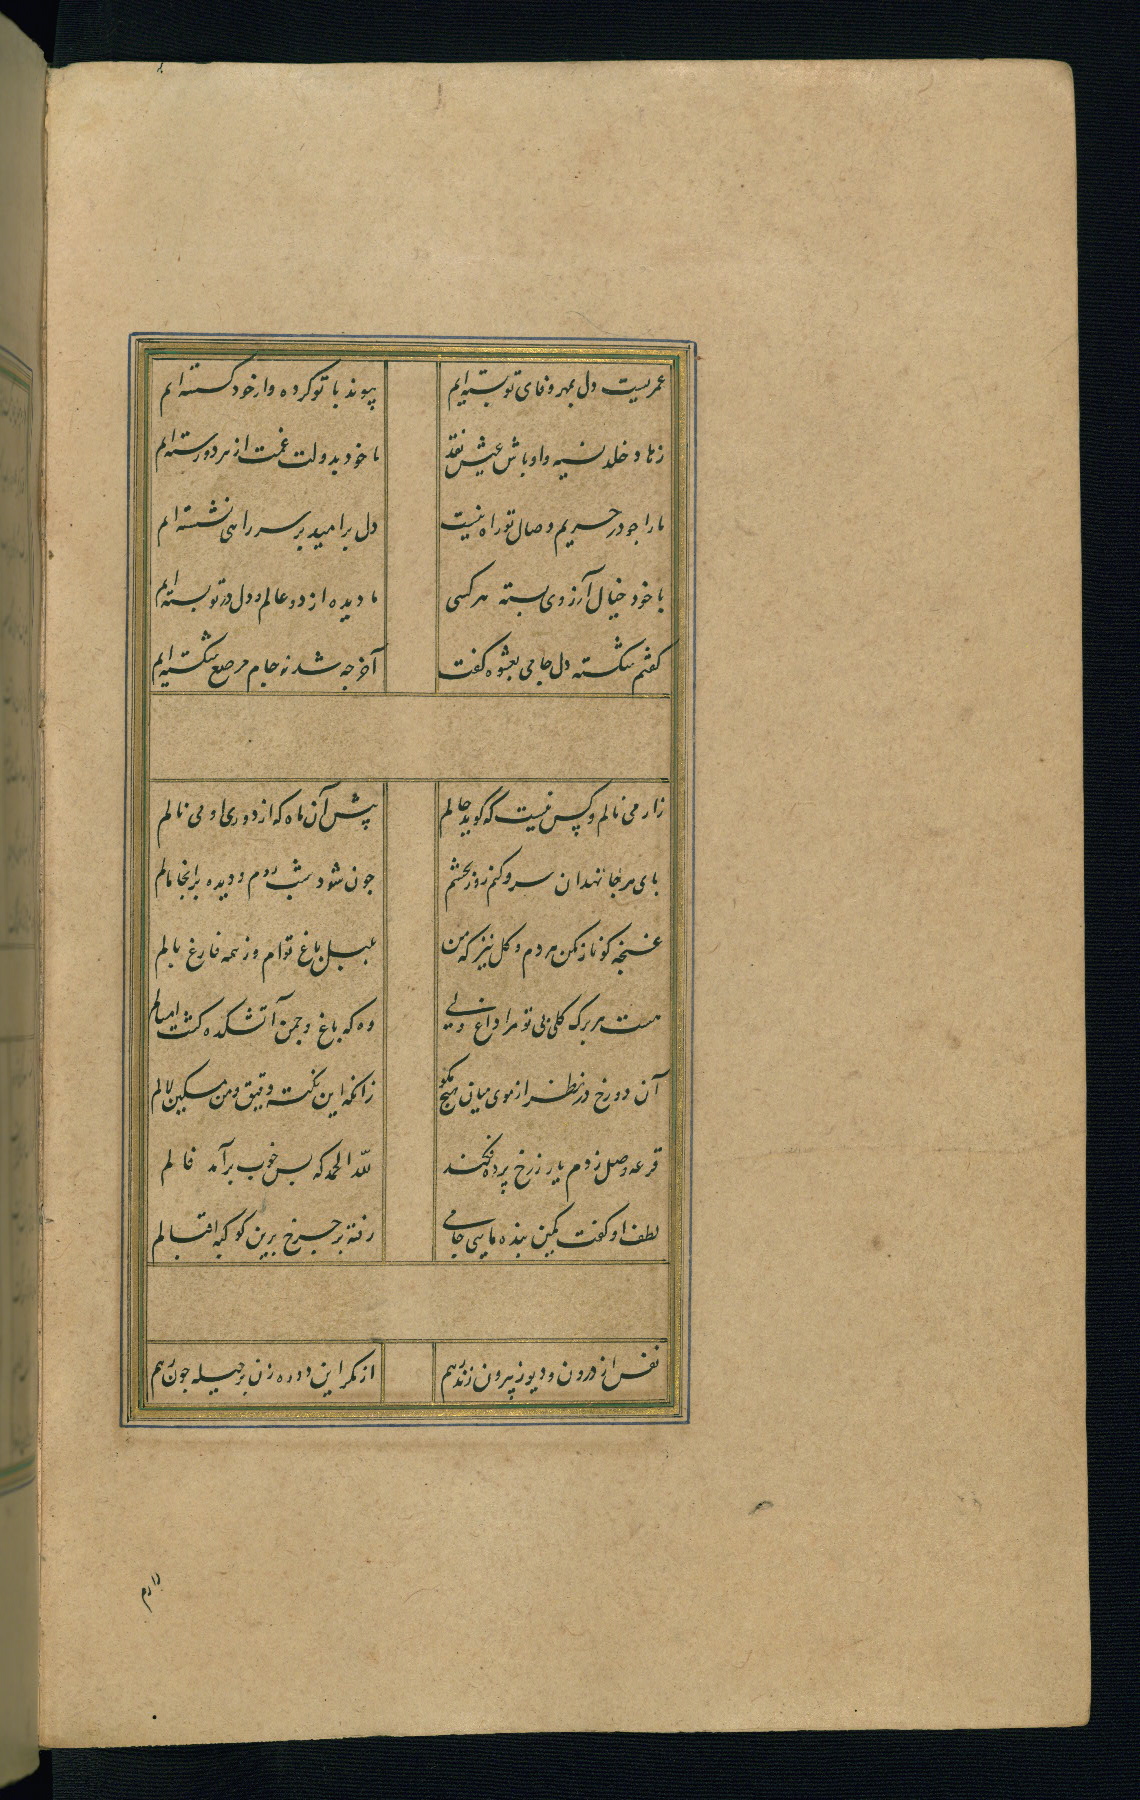 عمریست دل بمهر وفای تو بسته‌ایم پیوند با تو کرده و از خود گسسته‌ایم
زهاد خلد نسیه و اوباش عیش نقد ما خود بدولت غمت از هر دو رسته‌ایم
ما را جو در حریم وصال تو راه نیست دل بر امید بر سر راهی نشسته ایم
با خود خیال آرزوی بسته هر کسی ما دیده از دو عالم و دل در تو بسته ایم
کفتم شکسته دل جامی بعشوه کفت آخر جه شد نه جام مرصع شکسته‌ایم
زار می نالم و کس نیست که کوید حالم پیش آن ماه که از دوری او می نالم
بای هر جا نهد آن سرو کنم روز بچشم جون شود شب روم و دیده بر آنجا مالم
غنجه کو ناز مکن هر دم و کل نیز که من بلبل باغ توام وز همه فارغ بالم
هست هر برک کلی بی تو مرا داغ دلی وه که باغ و جمن آتشکده کشت امسالم
آن دو رخ در نظر از موی میان هیج مکو زانکه این نکته دقیق و من مسکین لالم
قرعه وصل زدم یار ز رخ پرده فکند لله الحمد که بس خوب برآمد فالم
لطف او کفت کمین بنده مایی جامی رفت بر جرخ برین کوکبه اقبالم
نفس از درون و دیو ز بیرون زند رهم از مکر این دو ره زن بر حیله جون رهم
دارم